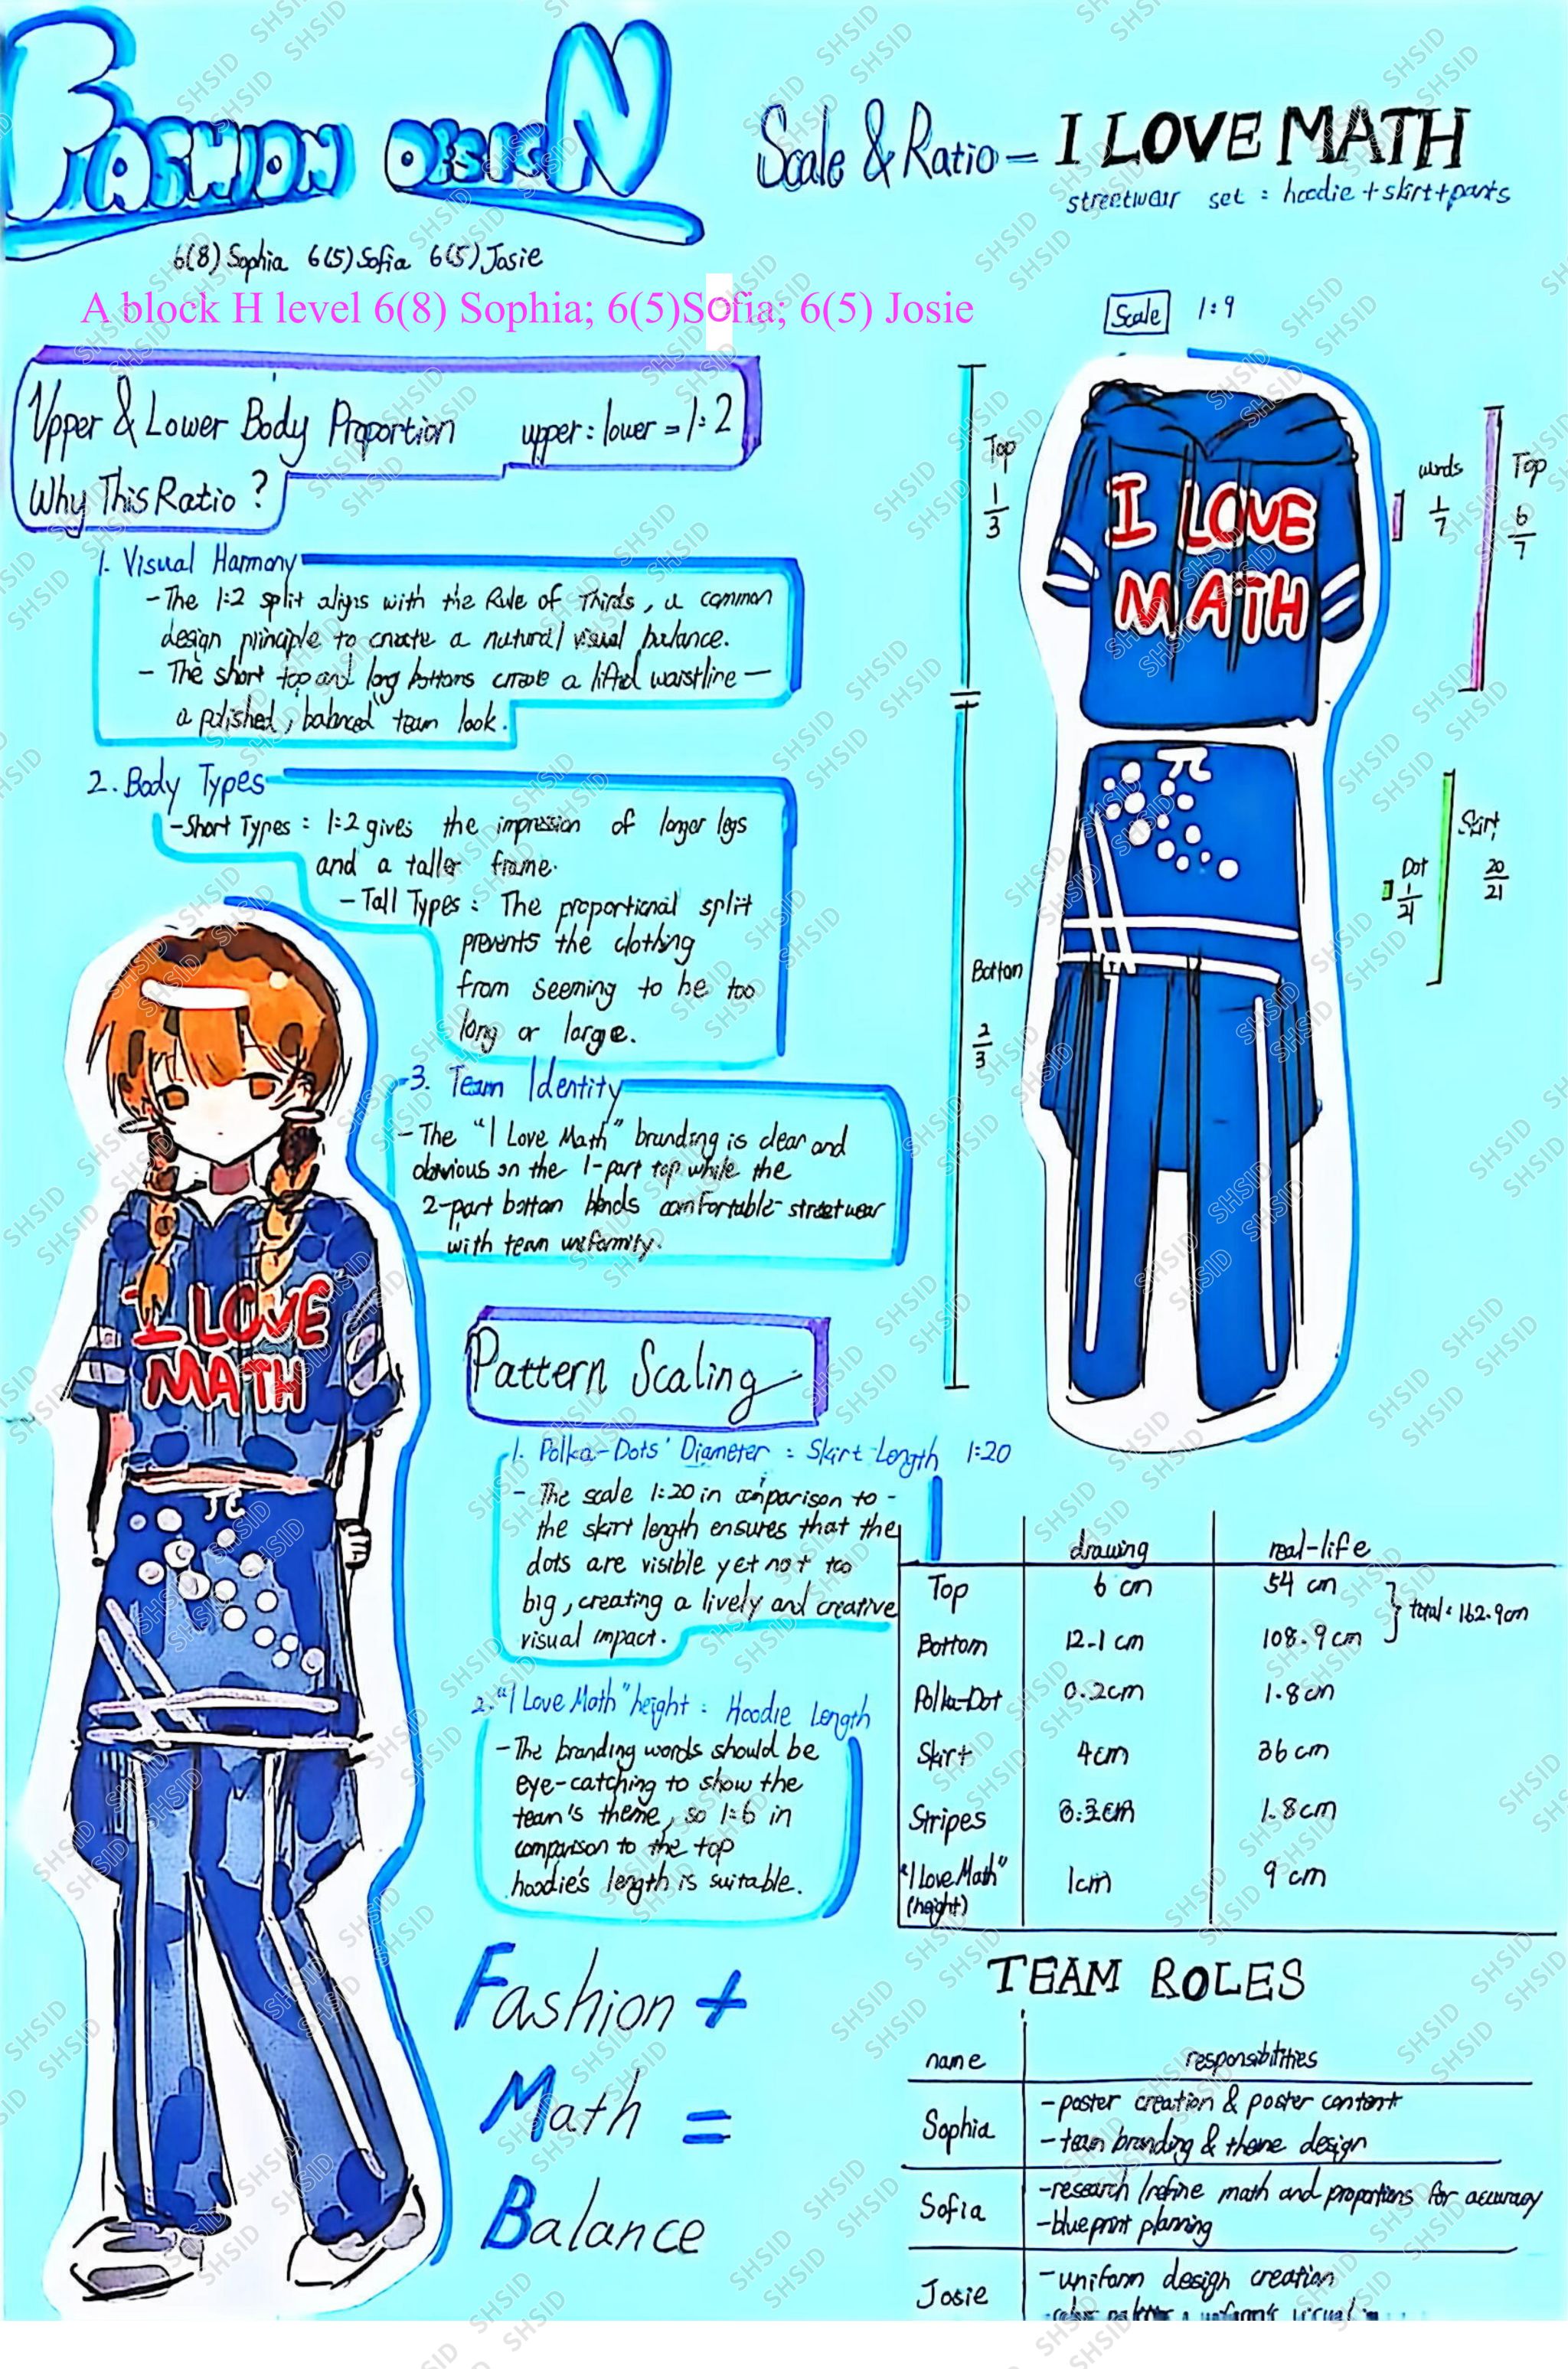 FASHION DESIGN
Scale & Ratio – I LOVE MATH
streetwear set : hoodie + skirt + pants
6(8) Sophia 6(5) Sofia 6(5) Josie
A block H level 6(8) Sophia; 6(5)Sofia; 6(5) Josie
Scale 1:9
Upper & Lower Body Proportion upper : lower = 1:2
Why This Ratio ?
1. Visual Harmony
- The 1:2 split aligns with the Rule of Thirds, a common
design principle to create a natural visual balance.
- The short top and long bottoms create a lifted waistline —
a polished, balanced team look.
2. Body Types
- Short Types : 1:2 gives the impression of longer legs
and a taller frame.
- Tall Types : The proportional split
prevents the clothing
from seeming to be too
long or large.
3. Team Identity
- The "I Love Math" branding is clear and
obvious on the 1-part top while the
2-part bottom blends comfortable streetwear
with team uniformity.
Top
1/3
Bottom
2/3
I LOVE
MATH
π
words
1/7
Top
6/7
Dot
1/21
Skirt
20/21
I LOVE
MATH
π
Pattern Scaling
1. Polka-Dots' Diameter : Skirt Length 1:20
- The scale 1:20 in comparison to -
the skirt length ensures that the
dots are visible yet not too
big, creating a lively and creative
visual impact.
2. "I Love Math" height : Hoodie Length
- The branding words should be
eye-catching to show the
team's theme, so 1:6 in
comparison to the top
hoodie's length is suitable.
drawing real-life
Top 6 cm 54 cm
total: 162.9cm
Bottom 12.1 cm 108.9 cm
Polka-Dot 0.2cm 1.8 cm
Skirt 4cm 36 cm
Stripes 1.8cm
"I Love Math" 1cm 9 cm
(height)
Fashion +
Math =
Balance
TEAM ROLES
name responsibilities
Sophia
- poster creation & poster content
- team branding & theme design
Sofia
- research / refine math and proportions for accuracy
- blueprint planning
Josie
- uniform design creation
SHSID